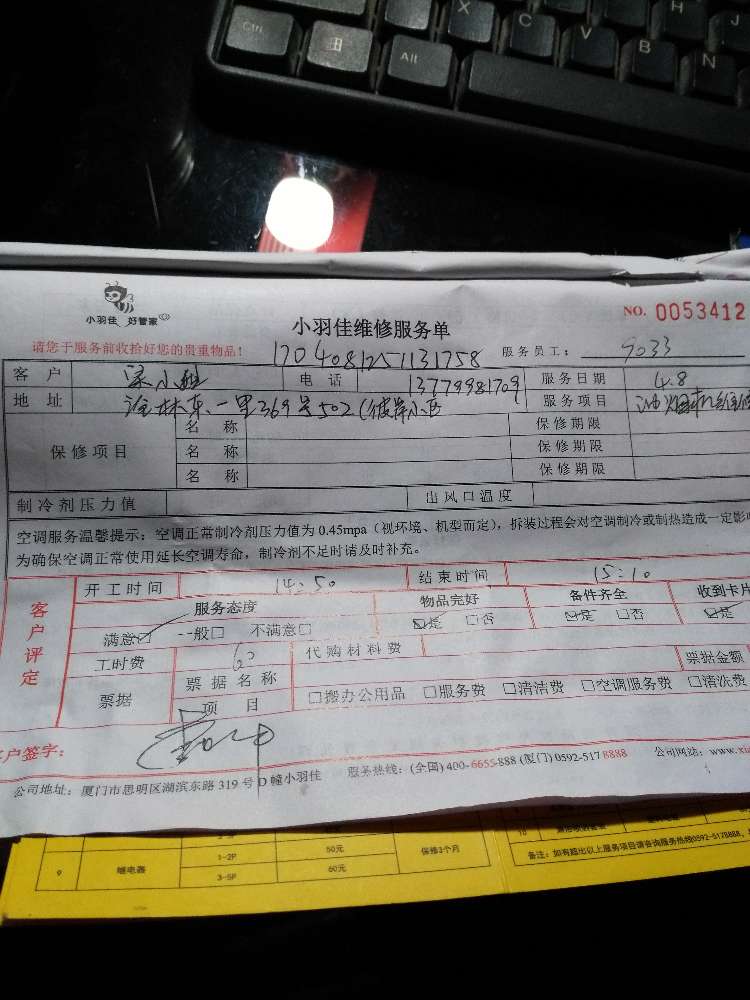 Ctrl
Alt
X
C
V
B
N
H
J
小羽佳 好管家
小羽佳维修服务单
NO. 0053412
请您于服务前收拾好您的贵重物品！
服务员工：
客 户
电 话
13779981709
服务日期
4.8
地 址
一里369号502(彼岸小区
服务项目
保修项目
名 称
保修期限
名 称
保修期限
名 称
保修期限
制冷剂压力值
出风口温度
空调服务温馨提示：空调正常制冷剂压力值为 0.45mpa（视环境、机型而定），拆装过程会对空调制冷或制热造成一定影
为确保空调正常使用延长空调寿命，制冷剂不足时请及时补充。
客户评定
开工时间
14:50
结束时间
15:10
服务态度
物品完好
备件齐全
收到卡片
满意☑ 一般□ 不满意□
☑是 □否
☑是 □否
☑是
工时费
60
代购材料费
票据
票据名称
票据金额
项 目
□搬办公用品 □服务费 □清洁费 □空调服务费 □清洗费
客户签字：
公司地址：厦门市思明区湖滨东路 319 号 D 幢小羽佳
服务热线：(全国) 400-6655-888 (厦门) 0592-517 8888
公司网站：www.xi
9
继电器
1-2P
50元
保修3个月
3-5P
60元
10
备注：如有超出以上服务项目请咨询服务热线0592-5178888、